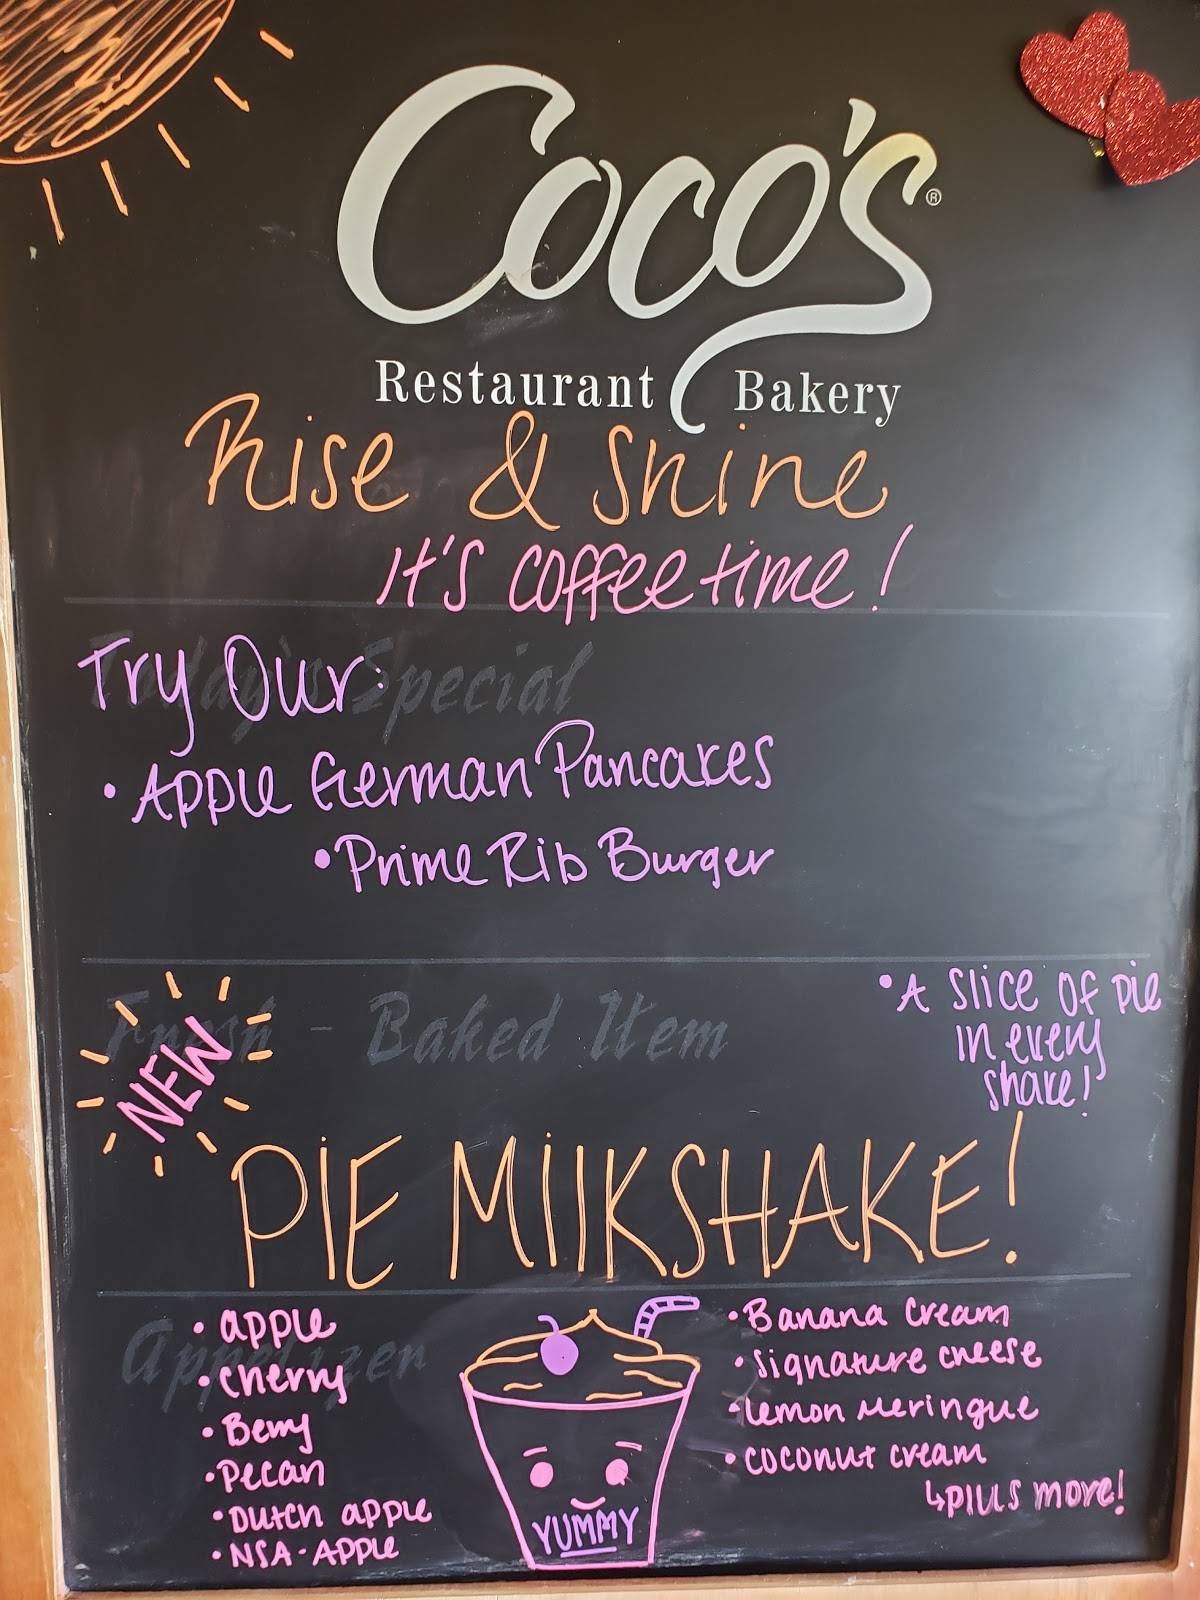 Coco's®
Restaurant Bakery
Rise & Shine
it's coffee time!
Today's Special
Try Our:
• Apple German Pancakes
• Prime Rib Burger
Fresh - Baked Item
NEW
• A slice of pie
in every
shake!
PIE MilKSHAKE!
Appetizer
• apple
• cherry
• Berry
• Pecan
• Dutch apple
• NSA - Apple
YUMMY
• Banana Cream
• Signature cheese
• Lemon Meringue
• coconut cream
↳plus more!